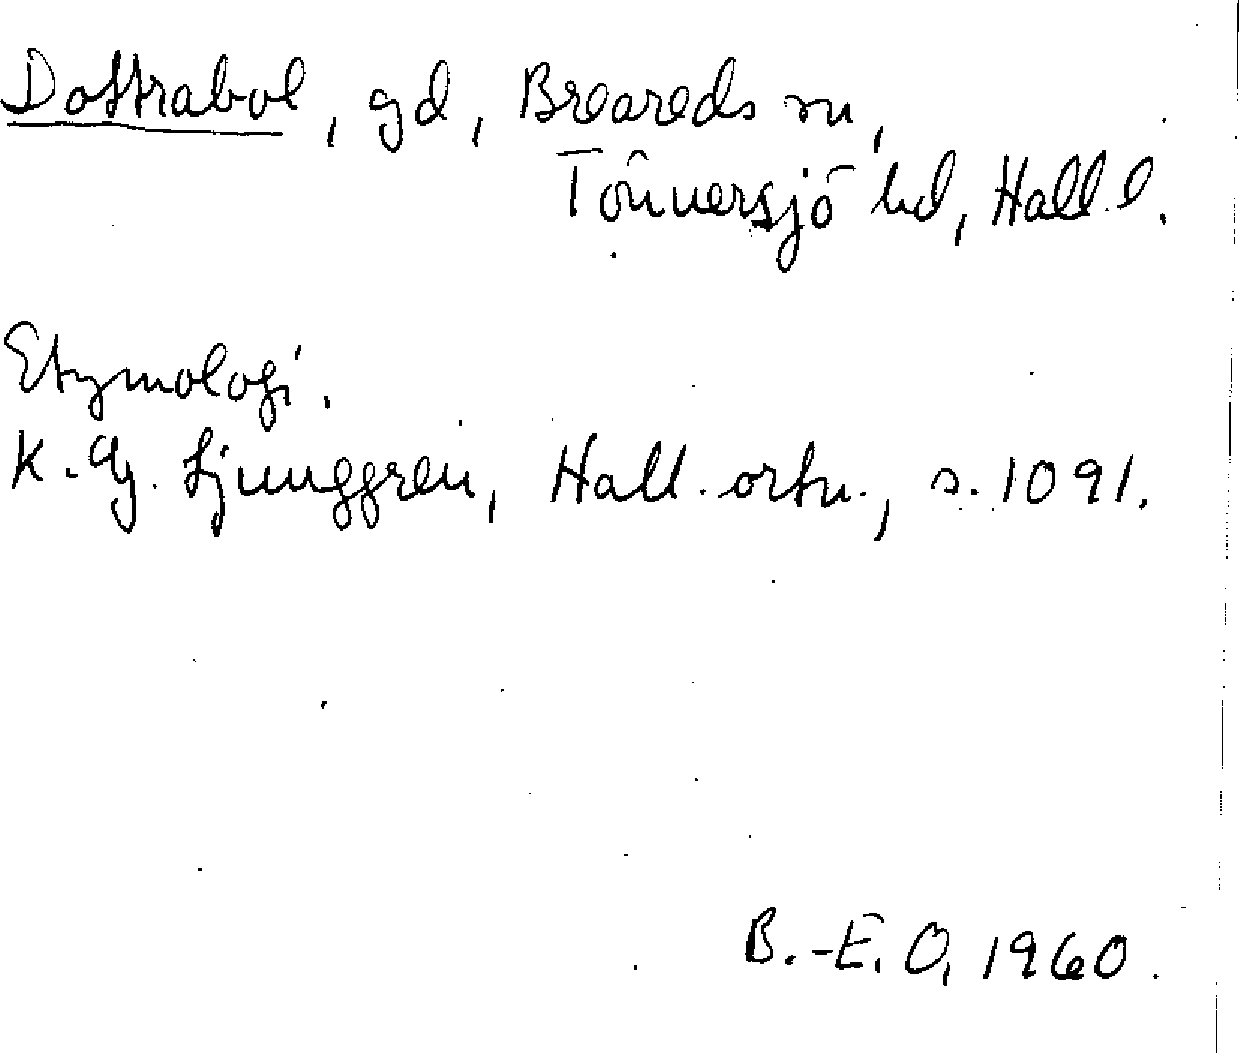 Dottrabol, gd, Breareds sn,
Tönnersjö hd, Hall. l.
Etymologi.
K. G. Ljunggren, Hall. ortn., s. 1091.
B.-E. O, 1960.